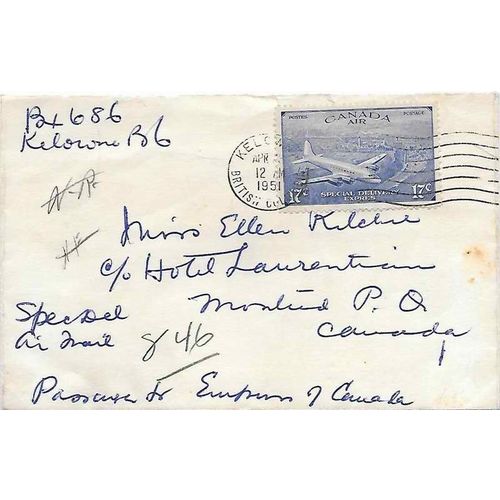 Bx 686
Kelowna BC
POSTES POSTAGE
CANADA
AIR
17c SPECIAL DELIVERY 17c
EXPRES
KELO
APR
12
1951
BRITISH
Miss Ellen Kilchie
c/o Hotel Laurentian
Montreal P. Q
Canada
Spec Del
Air Mail
846
Passenger to Empress of Canada